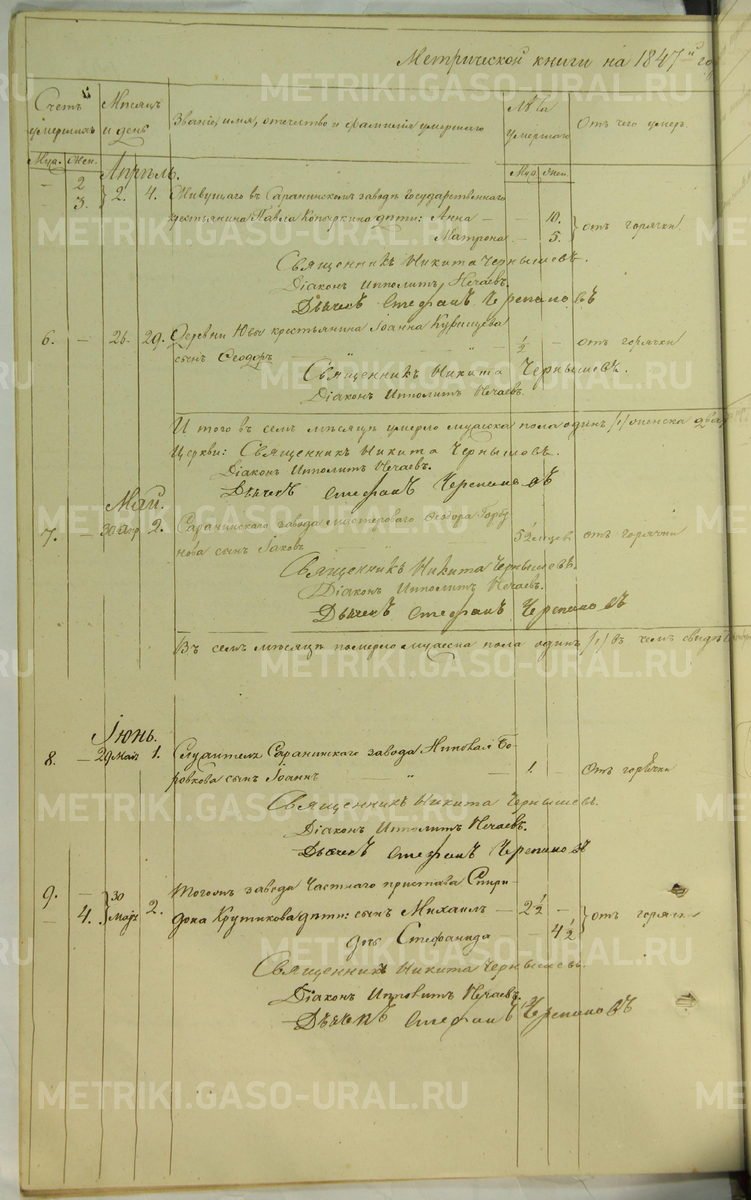 Метрической книги на 1847й го
Счетъ умершихъ
Мѣсяцъ и день
Званіе, имя, отечество и фамилія умершаго
Лѣта умершаго
Отъ чего умеръ.
Муж. Жен.
Муж. Жен.
Апрѣль.
— 2 2. 4. Живущаго въ Саранинскомъ заводѣ государственнаго
— 3. крестьянина Павла дѣти: Анна — 10. отъ горячки
Матрона — 5.
Священникъ Никита Чернышевъ.
Діаконъ Ипполитъ Нечаевъ.
Дьячекъ Стефанъ Черепановъ
6. — 26. 29. Деревни Ювы крестьянина Іоанна
сынъ Феодоръ ½ — отъ горячки
Священникъ Никита Чернышевъ.
Діаконъ Ипполитъ Нечаевъ.
И того въ семъ мѣсяцѣ умерло мужеска пола одинъ /1/ женска два
Церкви: Священникъ Никита Чернышовъ.
Діаконъ Ипполитъ Нечаевъ.
Дьячекъ Стефанъ Черепановъ
Май.
7. — 30 Апр 2. Саранинскаго завода мастероваго Феодора Горбу
нова сынъ Іаковъ — отъ горячки
Священникъ Никита Чернышевъ.
Діаконъ Ипполитъ Нечаевъ.
Дьячекъ Стефанъ Черепановъ
Въ семъ мѣсяцѣ померло мужеска пола одинъ /1/ въ чемъ свидѣ
Іюнь.
8. — 29 Май 1. Служителя Саранинскаго завода Николая Бо
ровкова сынъ Іоаннъ " — 1. — Отъ горячки
Священникъ Никита Чернышевъ.
Діаконъ Ипполитъ Нечаевъ.
Дьячекъ Стефанъ Черепановъ
9. — 30 Тогожъ завода Частнаго пристава Спири
— 4. Май 2. дона Крутикова дѣти: сынъ Михаилъ — 2½ — отъ горячки
дочь Стефанида — 4½
Священникъ Никита Чернышевъ.
Діаконъ Ипполитъ Нечаевъ.
Дьячекъ Стефанъ Черепановъ
METRIKI.GASO-URAL.RU